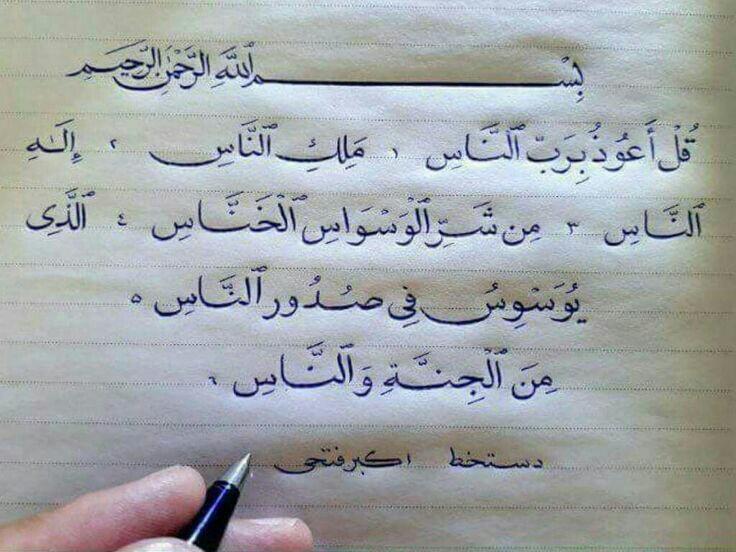 بِسْمِ اللَّهِ الرَّحْمٰنِ الرَّحِيمِ
قُلْ أَعُوذُ بِرَبِّ ٱلنَّاسِ ١ مَلِكِ ٱلنَّاسِ ٢ إِلَـٰهِ
ٱلنَّاسِ ٣ مِن شَرِّ ٱلْوَسْوَاسِ ٱلْخَنَّاسِ ٤ ٱلَّذِى
يُوَسْوِسُ فِى صُدُورِ ٱلنَّاسِ ٥
مِنَ ٱلْجِنَّةِ وَٱلنَّاسِ ٦
دستخط اکبر فتحی